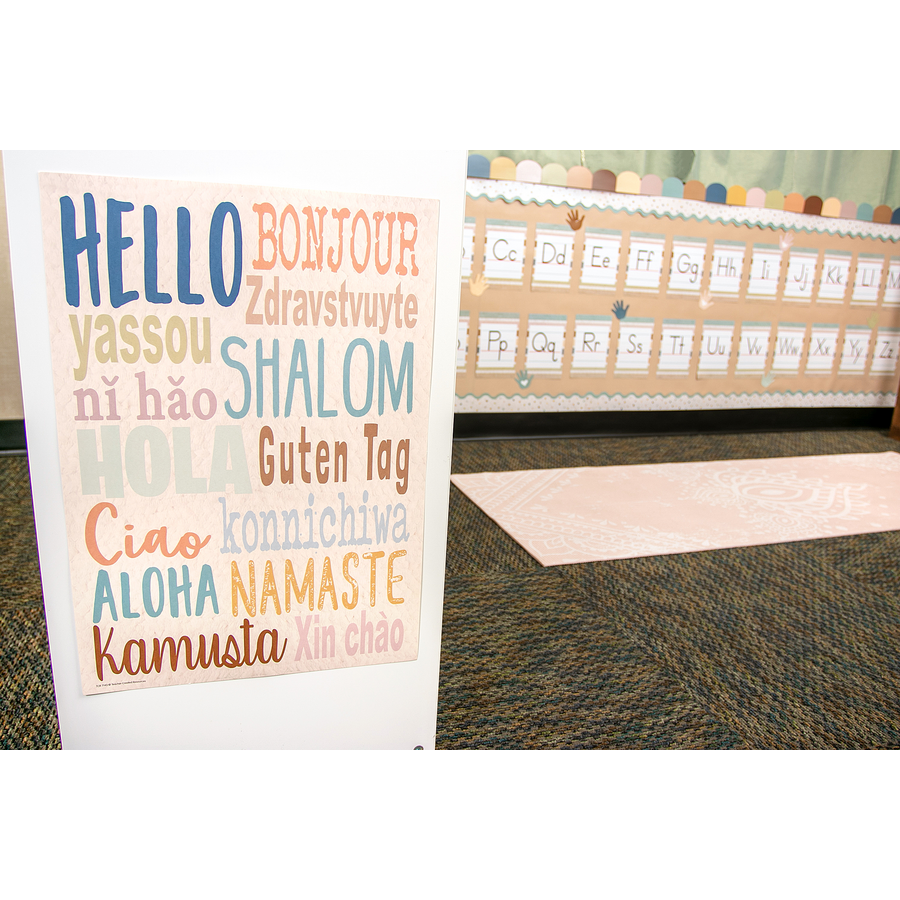 HELLO
BONJOUR
Zdravstvuyte
yassou
SHALOM
nǐ hǎo
HOLA
Guten Tag
Ciao
konnichiwa
ALOHA
NAMASTE
Kamusta
Xin chào
Cc Dd Ee Ff Gg Hh Ii Jj Kk Ll
Pp Qq Rr Ss Tt Uu Vv Ww Xx Yy Zz